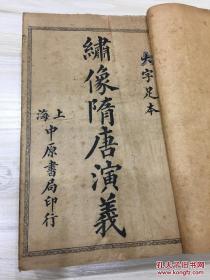 大字足本
繡像隋唐演義
上海
中原書局印行